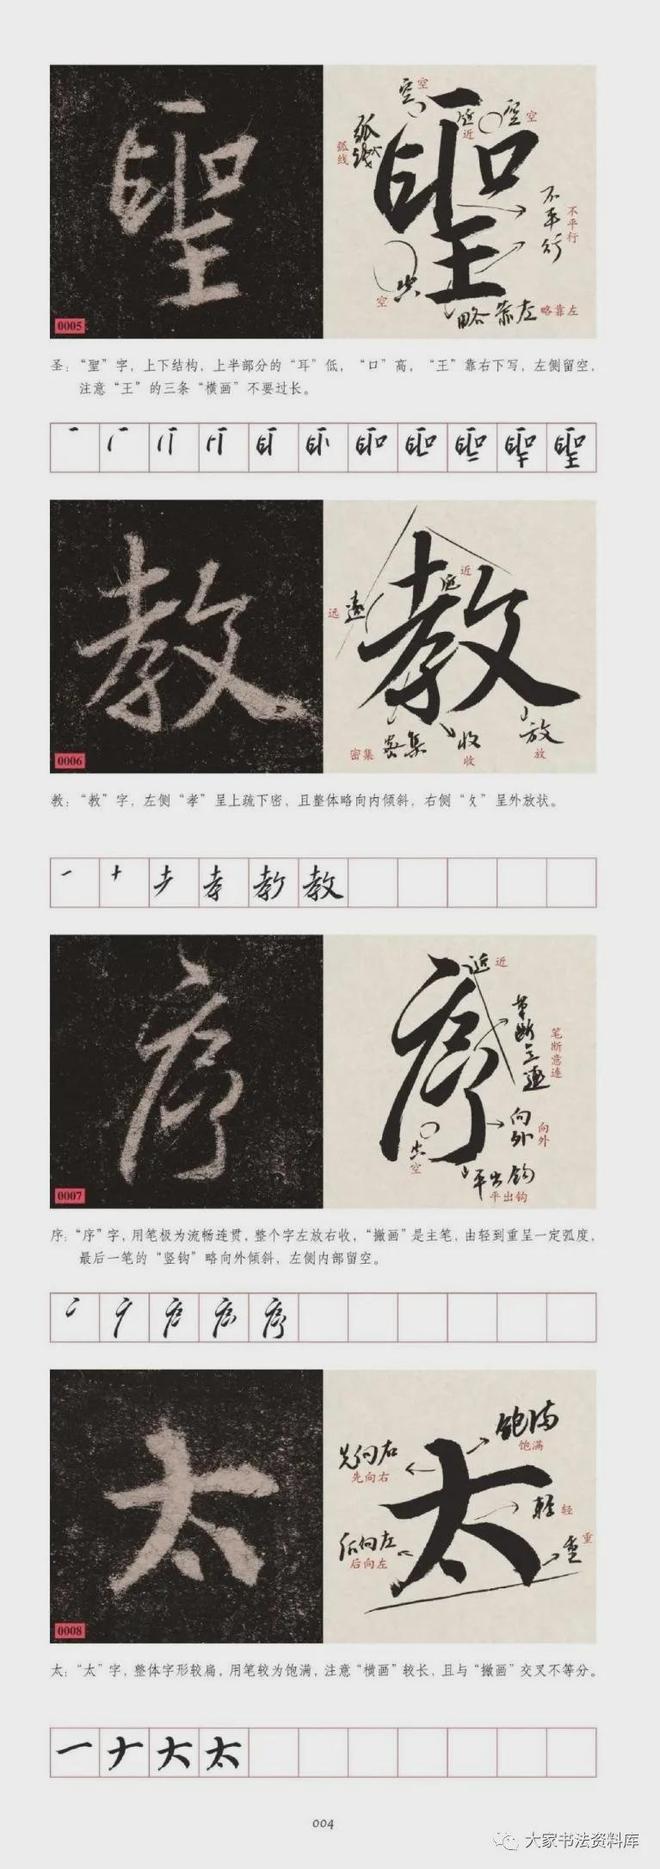 聖
空
空
近
弧线
不平行
空
略靠左
0005
圣：“聖”字，上下结构，上半部分的“耳”低，“口”高，“王”靠右下写，左侧留空，
注意“王”的三条“横画”不要过长。
教
近
远
密集
收
放
0006
教：“教”字，左侧“孝”呈上疏下密，且整体略向内倾斜，右侧“攵”呈外放状。
序
近
笔断意连
向外
空
平出钩
0007
序：“序”字，用笔极为流畅连贯，整个字左放右收，“撇画”是主笔，由轻到重呈一定弧度，
最后一笔的“竖钩”略向外倾斜，左侧内部留空。
太
饱满
先向右
轻
重
后向左
0008
太：“太”字，整体字形较扁，用笔较为饱满，注意“横画”较长，且与“撇画”交叉不等分。
004
大家书法资料库